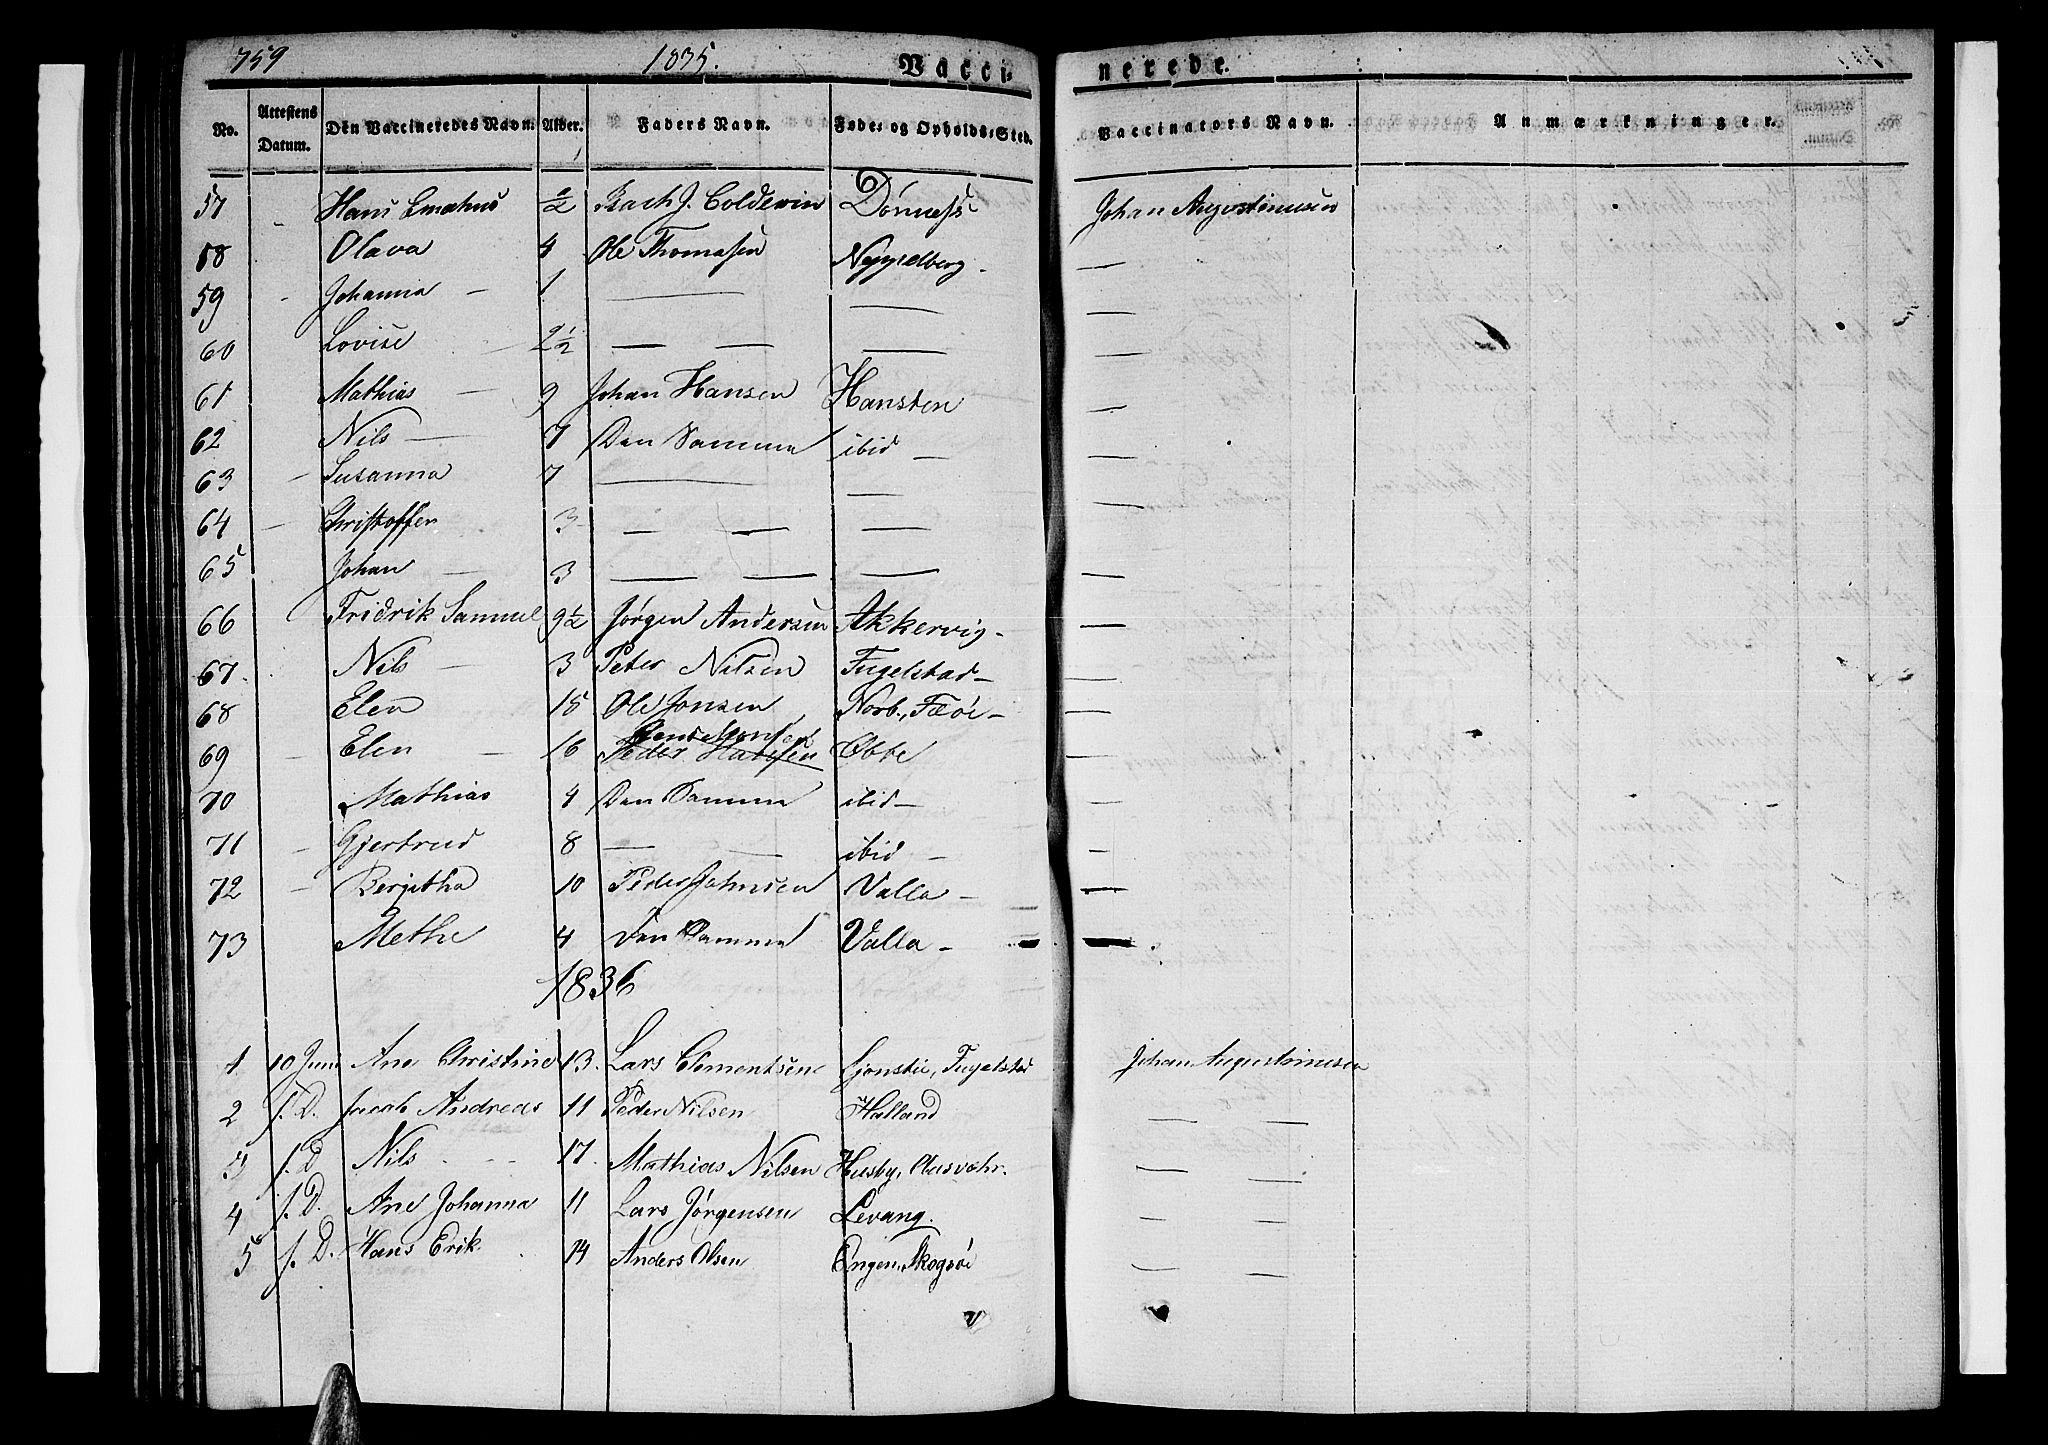 759 1835. Vacci- nerede.
No. Attestens Datum. Den Vaccineredes Navn. Alder. Faders Navn. Føde- og Opholds-Sted. Vaccinators Navn. Anmærkninger.
57 - Hans ½ J. Coldevin Dønnes Johan Augustinusen
58 Olava 4 Ole Thomasen Nyppelberg - —
59 - Johanna — 1 — — —
60 Lovise 2½ — — — —
61 Mathias — 9 Johan Hansen Hansten —
62 Nils — 7 Den Samme ibid — —
63 - Susanna 7 — — —
64 - Christoffer 3 — — — —
65 Johan — 3 — — — —
66 Fridrik Samuel 9½ Jørgen Andersen Akkervig - —
67. Nils — 3 Peter Nilsen Fugelstad — —
68 Elen 15 Ole Jonsen Norb., Fæøe — —
69 - Elen — 16 Peder Hansen Obte —
70 Mathias 4 Den Samme ibid — —
71 - Gjertrud 8 — — ibid — —
72 - Bergitha 10 Peder Johnsen Valla — —
73 Methe 4 Den Samme Valla — —
1836
1 10 Juni Ane Christine 13. Lars Clementsen Fugelstad Johan Augustinusen
2 f. D. Jacob Andreas 11 Peder Nilsen Halland — —
3 f. D Nils - - - 17. Mathias Nilsen Husby, Aasvahr. — —
4 f. D. Ane Johanna 11 Lars Jørgensen Levang. — —
5 f. D. Hans Erik. 14 Anders Olsen Engen, Skogsøe — —